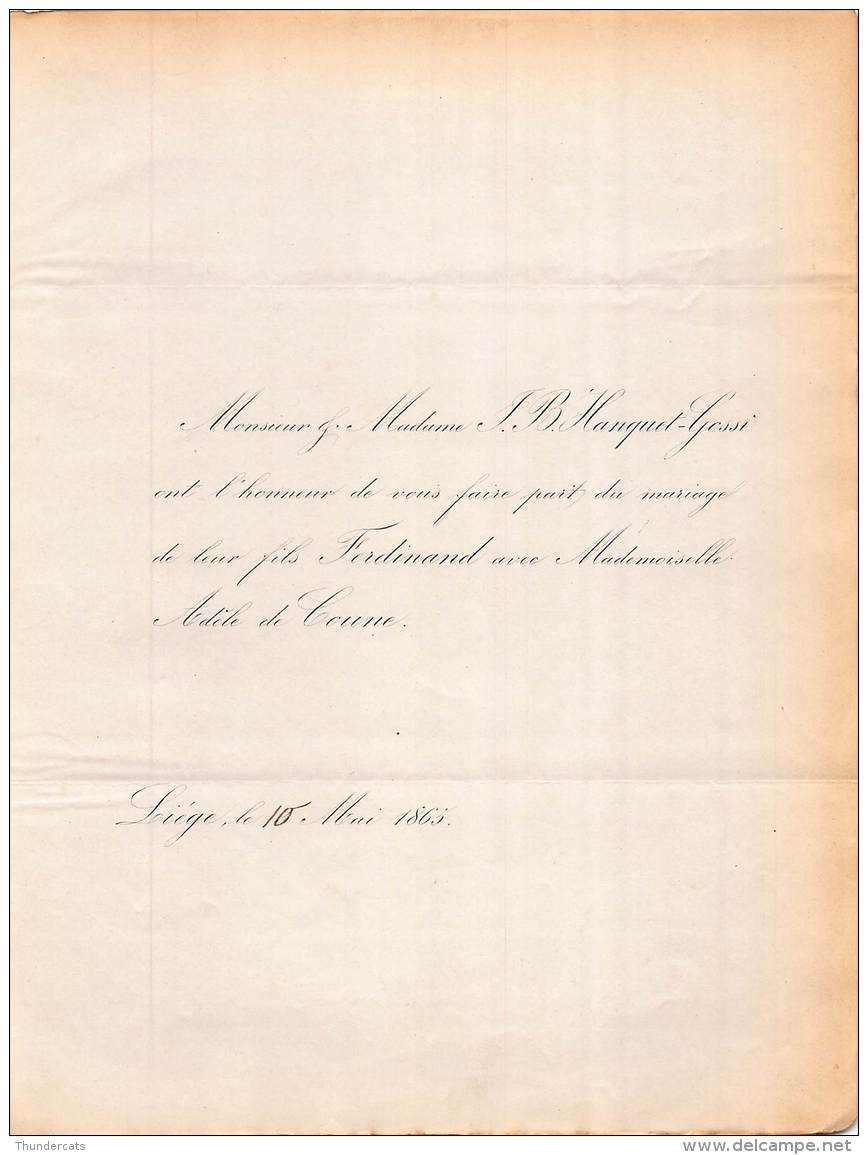 Monsieur & Madame J. B. Hanquet-Gossi
ont l'honneur de vous faire part du mariage
de leur fils Ferdinand avec Mademoiselle
Adèle de Coune.
Liége, le 10 Mai 1865.
Thundercats
www.delcampe.net